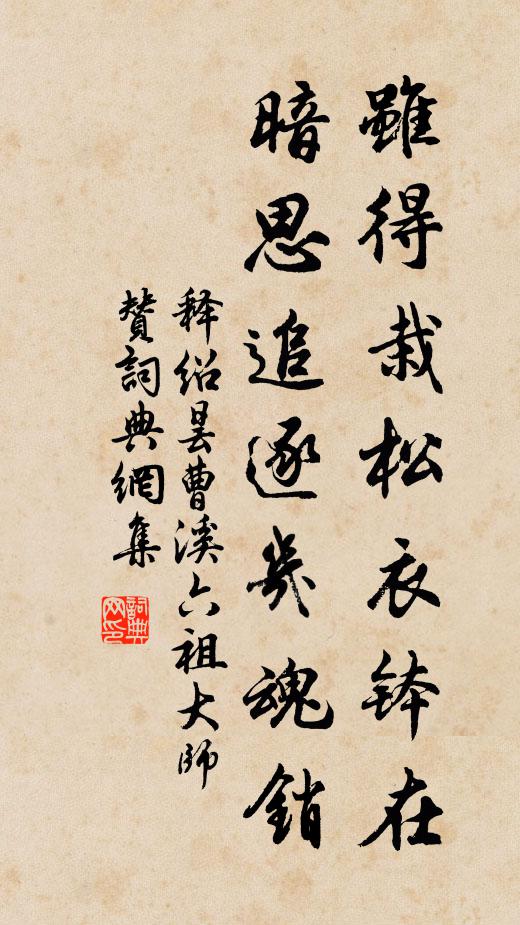 雖得栽松衣鉢在
暗思追逐幾魂銷
释绍昙曹溪六祖大師
赞詞典網集
詞典网印